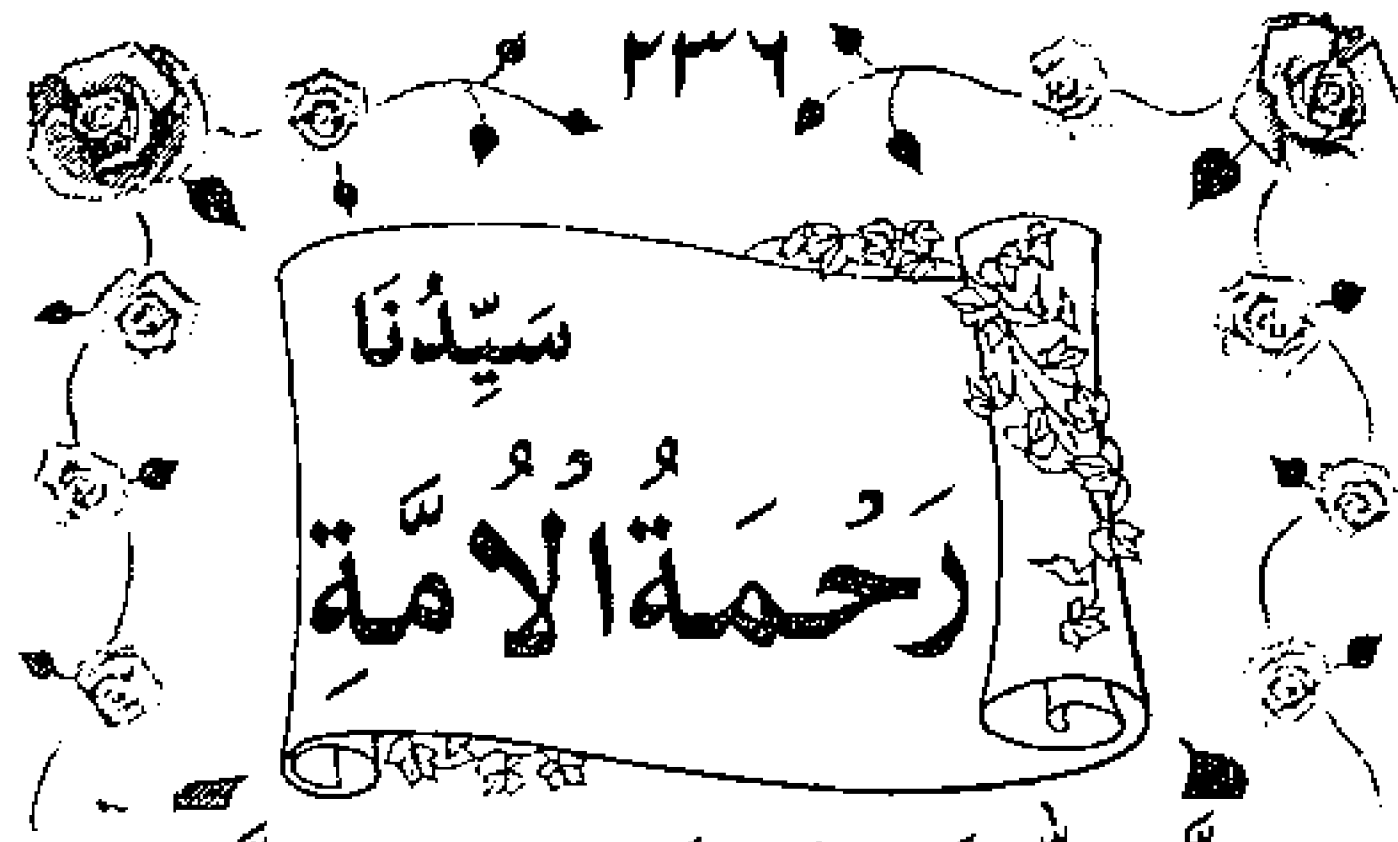 ٢٣٦
سَيِّدُنَا
رَحْمَةُ الْاُمَّةِ